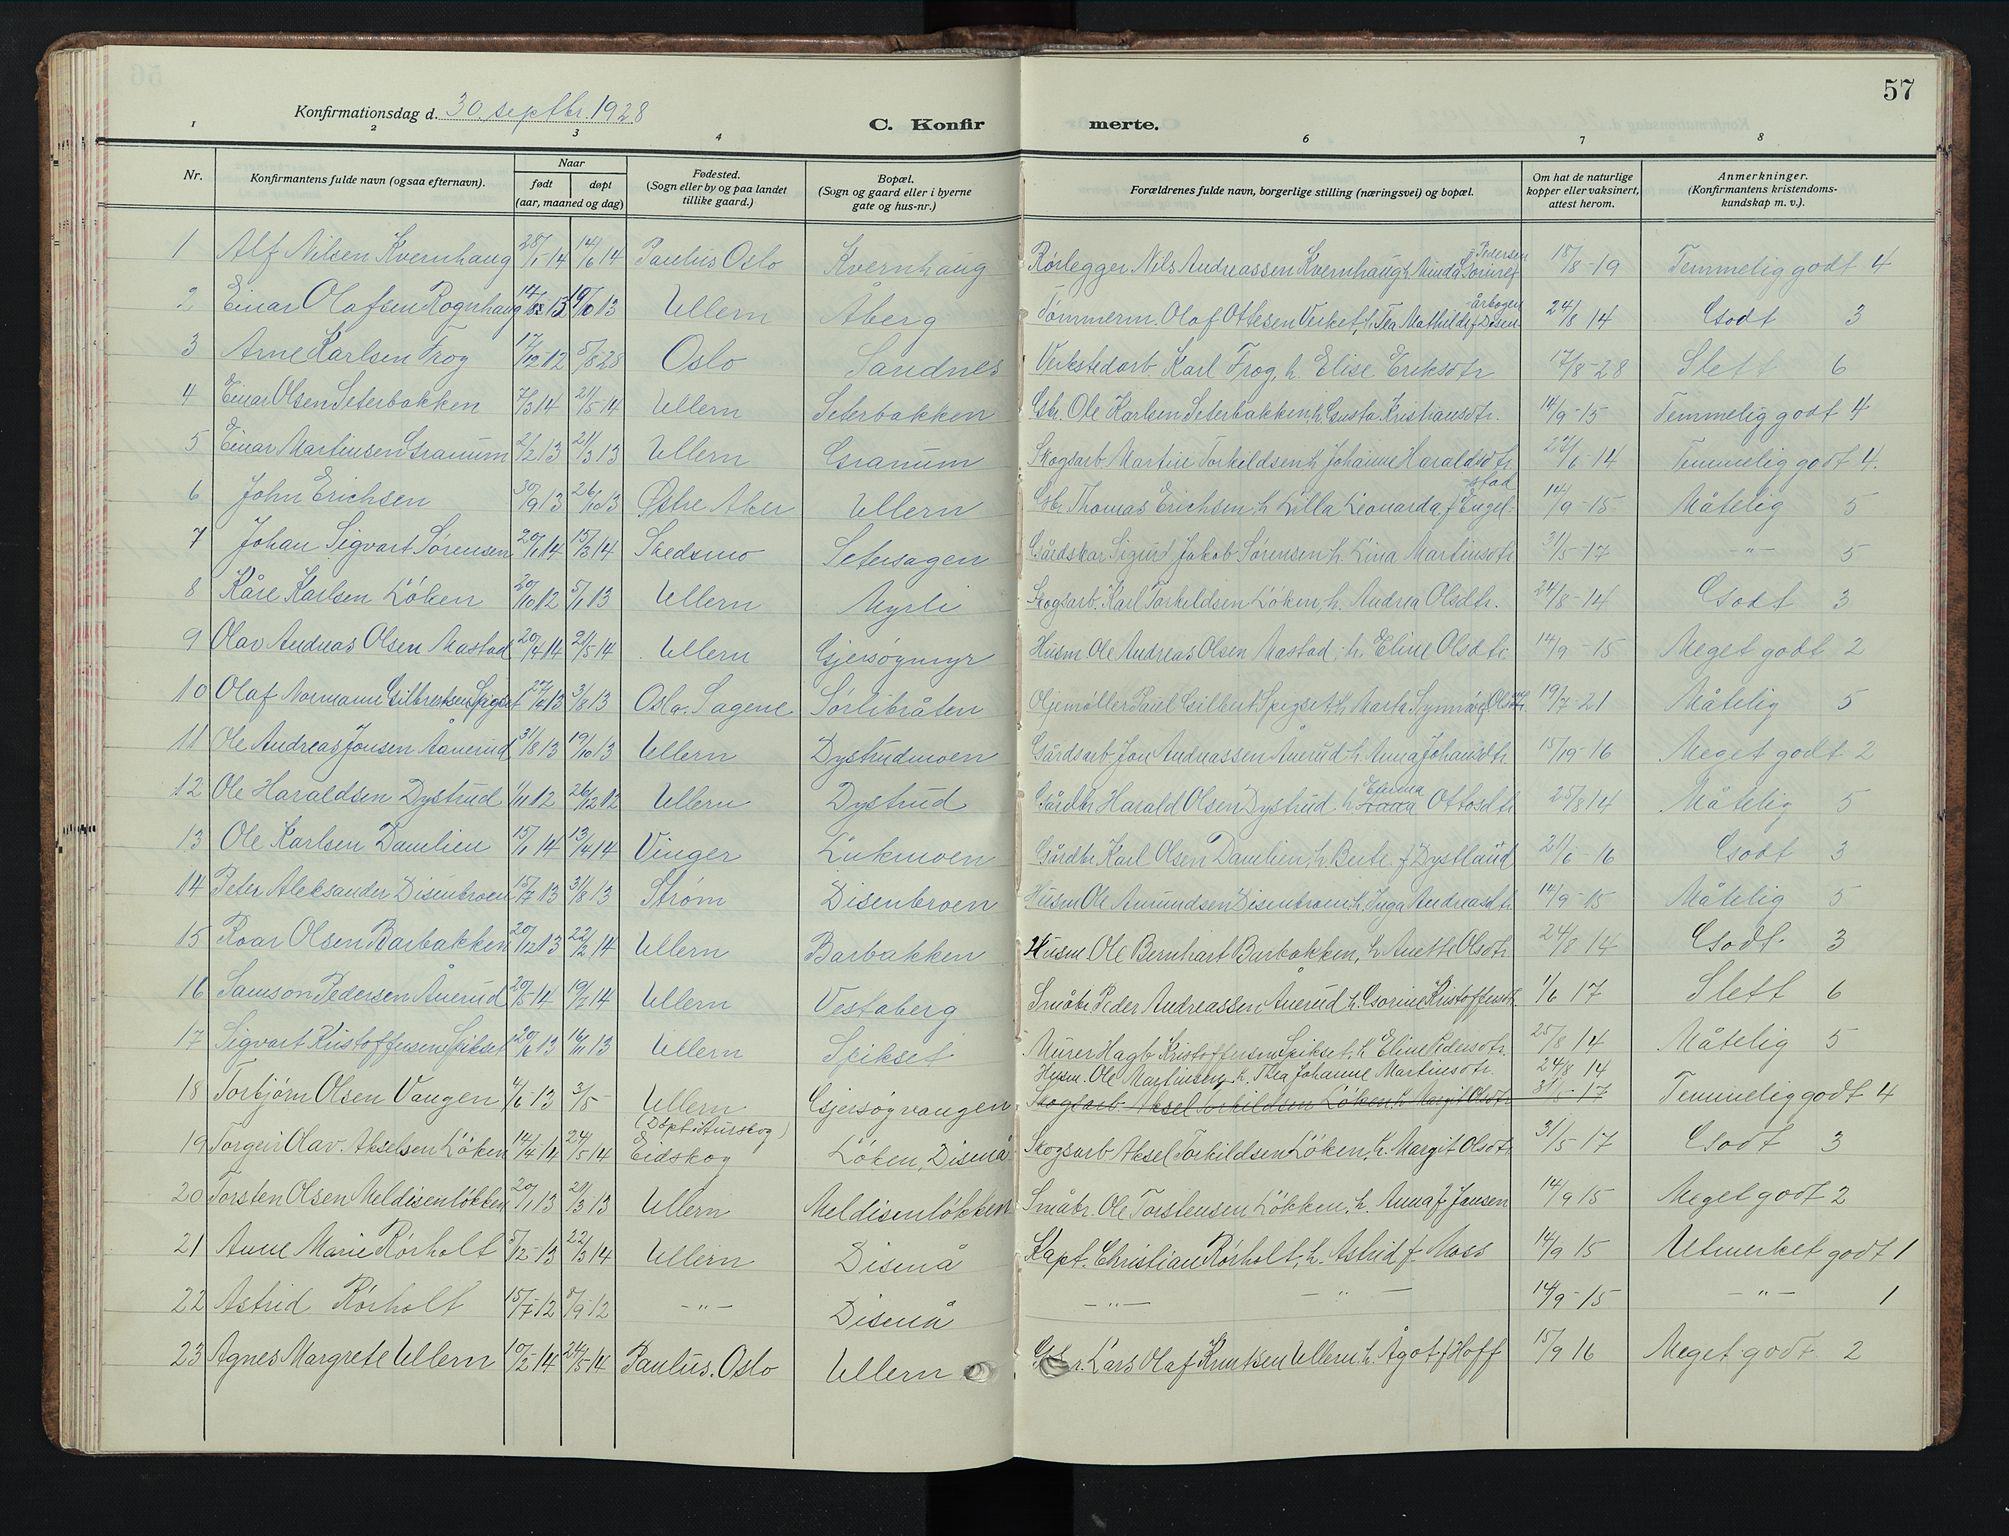 57
Konfirmationsdag d. 30. septbr. 1928
C. Konfirmerte.
1 2 3 4 6 7 8
Nr. Konfirmantens fulde navn (ogsaa efternavn). Naar født døpt (aar, maaned og dag) Fødested. (Sogn eller by og paa landet tillike gaard.) Bopæl. (Sogn og gaard eller i byerne gate og hus-nr.) Forældrenes fulde navn, borgerlige stilling (næringsvei) og bopæl. Om hat de naturlige kopper eller vaksinert, attest herom. Anmerkninger. (Konfirmantens kristendomskundskap m. v.).
1 Alf Nilsen Kvernhaug 28/1-14 14/6 14 Paulus Oslo Kvernhaug Rørlegger Nils Andreassen Kvernhaug h. Pedersen 18/8-19 Temmelig godt 4
2 Einar Olafsen Rognhaug 19/10 13 Ullern Åberg Tømmerm. Olaf Ottesen Verket, h. Tea Mathilde f. Disen 24/8 14 Godt 3
3 Arne Karlsen Frog 17/12-12 5/8-28 Oslo Sandnes Verkstedarb. Karl Frog, h. Elise Eriksdtr 17/8-28 Slett 6
4 Einar Olsen Seterbakken 7/3 14 21/5-14 Ullern Seterbakken Gbr. Ole Karlsen Seterbakken, h. Gusta Kristiansdtr. 14/9-15 Temmelig godt 4
5 Einar Martinsen Granum 2/2 13 21/3 13 Ullern Granum Skogsarb. Martin Torkildsen h. Johanne Haraldsdtr. 27/6-14 Temmelig godt 4.
6 John Erichsen 30/9 13 26/10 13 Østre Aker Ullern Gbr. Thomas Erichsen, h. Lilla Leonarda f. Engelstad 14/9-15 Måtelig 5
7 Johan Sigvart Sørensen 20/1 14 15/3 14 Skedsmo Setersagen Gårdskar Sigurd Jakob Sørensen h. Lina Martinsdtr 31/5-17 -"- 5
8 Kåre Karlsen Löken 20/10 12 5/1 13 Ullern Myrli Skogsarb. Karl Torkildsen Löken, h. Andrea Olsdtr. 24/8-14 Godt 3
9 Olav Andreas Olsen Mastad 20/4 14 21/5 14 Ullern Gjersøgmyr Husm. Ole Andreas Olsen Mastad, h. Eline Olsdtr. 14/9-15 Meget godt 2
10 Olaf Normann Gilbertsen Spigset 3/8 13 Oslo. Sagene Sørlibråten Oljemøller Paul Gilbert Spigset, h. Marta 19/7-21 Måtelig 5
11 Ole Andreas Jonsen Ånerud 31/8 13 19/10 13 Ullern Dystrudmoen Gårdsarb Jon Andreassen Ånerud h. Anna Johansdtr 15/9-16 Meget godt 2
12 Ole Haraldsen Dystrud 1/11 12 26/12 12 Ullern Dystrud Gårdbr Harald Olsen Dystrud h. Ottosdtr 25/8 14 Måtelig 5
13 Ole Karlsen Damlien 15/1 14 13/4 14 Vinger Lukmoen Gårdbr. Karl Olsen Damlien, h. Berte f. Dystland 21/6-16 Godt 3
14 Peter Aleksander Disenbroen 15/7 13 31/8 13 Strøm Disenbroen Husm Ole Amundsen Disenbroen, h. Inga Andreasdtr. 14/9-15 Måtelig 5
15 Roar Olsen Barbakken 20/12 13 22/2 14 Ullern Barbakken Husm. Ole Bernhart Barbakken, h. Anette Olsdtr. 24/8 14 Godt. 3
16 Samson Pedersen Ånerud 20/5-14 19/7 14 Ullern Vestaberg Småbr. Peder Andreassen Ånerud h. Gorine Kristoffersdtr. 1/6 17 Slett 6
17 Sigvart Kristoffersen Spikset 20/6 13 16/11 13 Ullern Spikset Murer Hagb. Kristoffersen Spikset, h. Eline Pedersdtr. 25/8 14 Måtelig 5
Husm. Ole Martinsen h. Thea Johanne Martinsdtr. 24/8 14
18 Torbjørn Olsen Vangen 4/6-13 3/5- Ullern Gjersøgvangen Skogsarb. Aksel Torkildsen Löken, h. Margit Olsdtr 31/5-17 Temmelig godt 4
(Döpt i Aurskog)
19 Torgeir Olav. Akselsen Löken 14/4-14 24/5 14 Eidskog Löken, Diserå Skogsarb Aksel Torkildsen Löken, h. Margit Olsdtr. 31/5-17 Godt 3
20 Torsten Olsen Meldisenløkken 20/1 13 21/3 13 Ullern Meldisenløkken Småbr. Ole Torstensen Løkken, h. Anna f. Jansen 14/9 15 Meget godt 2
21 Anne Marie Rørholt 5/12-13 22/3 14 Ullern Diserå Kapt. Christian Rørholt, h. Astrid f. Moss 14/9 15 Utmerket godt 1
22 Astrid Rørholt 15/7-12 8/9-12 -"- Diserå -"- -"- 14/9-15 -"- 1
23 Agnes Margrete Ullern 10/2-14 24/5-14 Paulus. Oslo Ullern Gbr. Lars Olaf Knutsen Ullern h. Ågot f. Hoff 15/9 16 Meget godt. 2